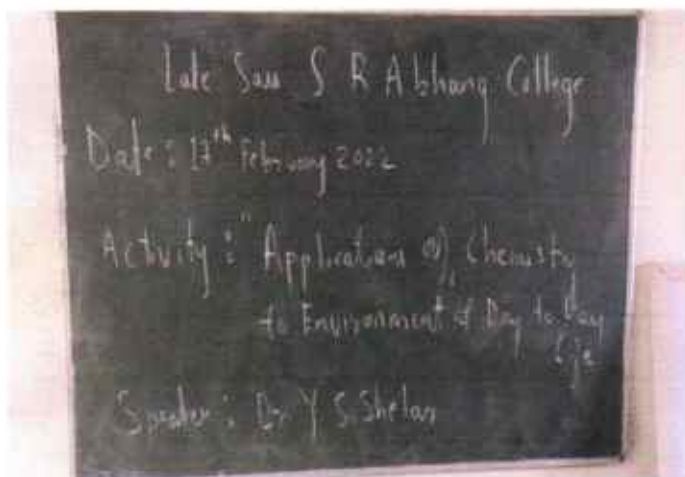 Late Sau S R Abhang College
Date : 17th February 2022
Activity : " Applications of Chemistry
to Environment & Day to Day
life
Speaker : Dr Y. S. Shelar